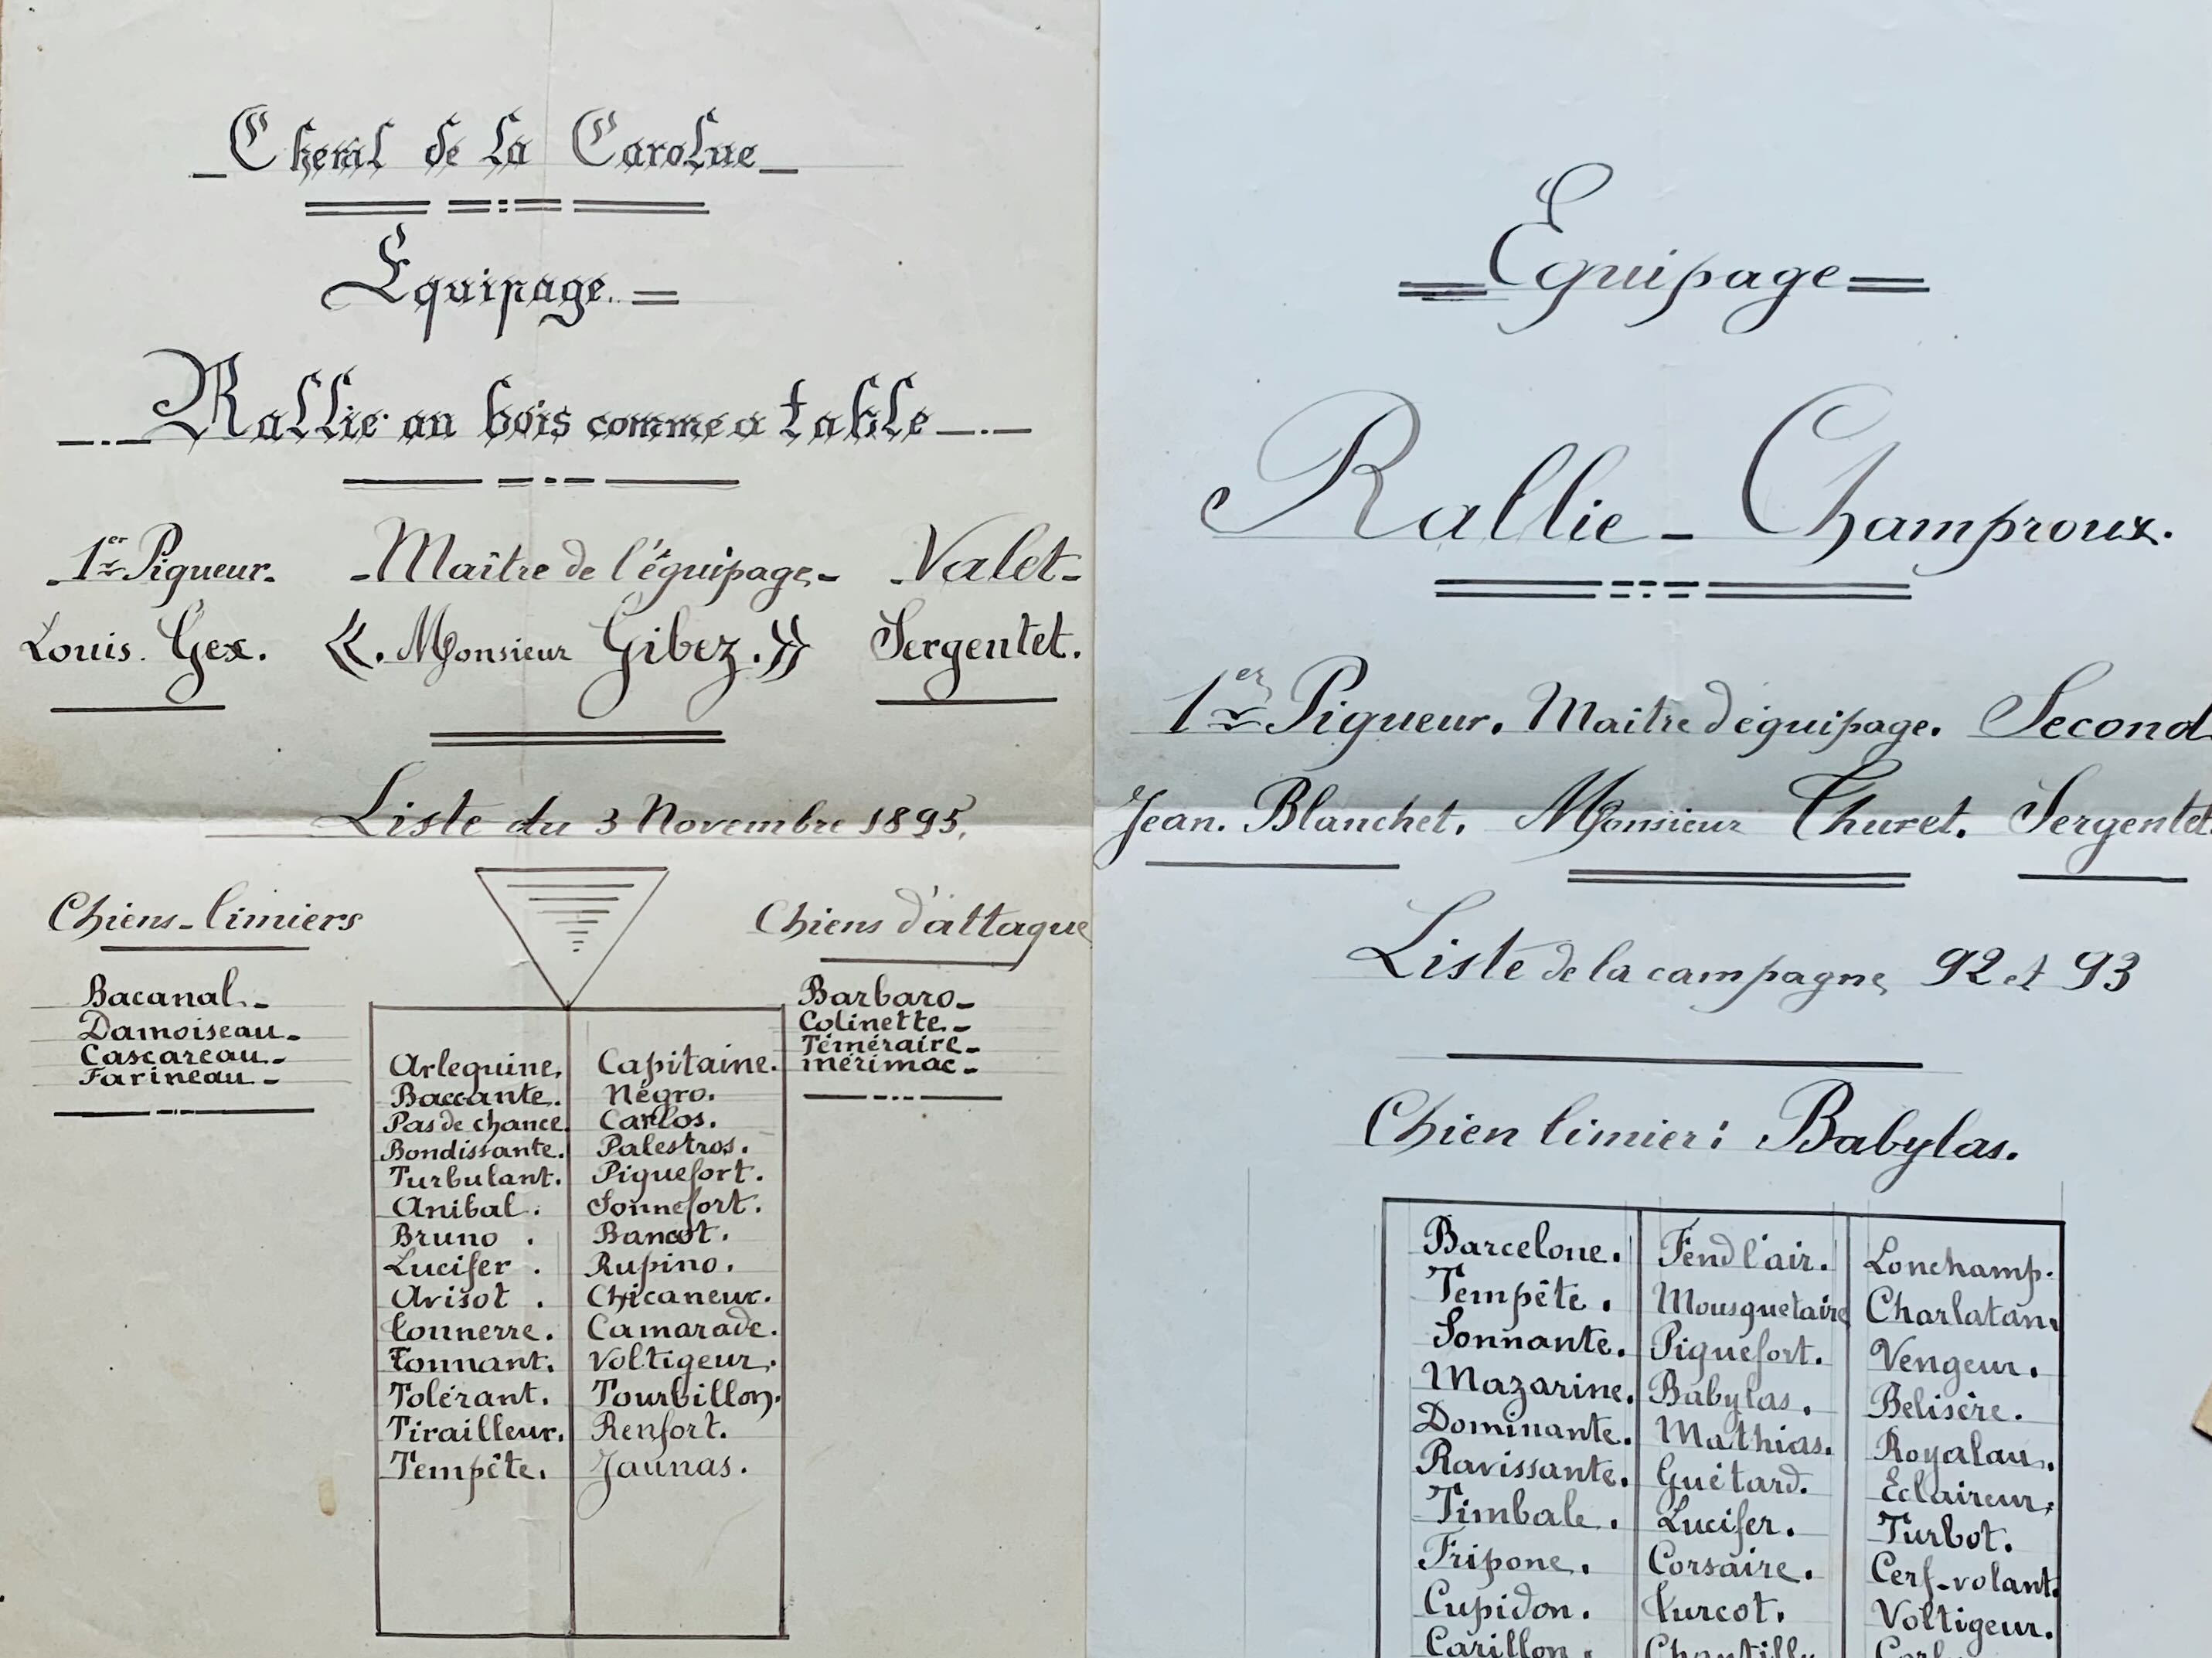 Chenil de la Carolue
Equipage.
Rallie au bois comme a table
1er Piqueur. Maître de l'équipage Valet
Louis. Gex. «. Monsieur Gibez.» Sergentet.
Liste du 3 Novembre 1895,
Chiens-limiers
Bacanal.
Damoiseau.
Cascareau.
Farineau.
Chiens d'attaque
Barbaro
Colinette.
Téméraire
mérimac
Arlequine. Capitaine.
Baccante. Négro.
Pas de chance. Carlos.
Bondissante. Palestros.
Turbulant. Piquefort.
Anibal. Sonnefort.
Bruno. Bancot.
Lucifer. Rupino.
Avisot. Chicaneur.
Tonnerre. Camarade.
Tonnant. Voltigeur.
Tolérant. Tourbillon.
Tirailleur. Renfort.
Tempête. Jaunas.
Equipage
Rallie-Champroux.
1er Piqueur. Maître d'équipage. Second
Jean. Blanchet. Monsieur Thuret. Sergentet.
Liste de la campagne 92 et 93
Chien limier: Babylas.
Barcelone. Fend l'air. Lonchamp.
Tempête. Mousquetaire Charlatan.
Sonnante. Piquefort. Vengeur.
Mazarine. Babylas. Belisère.
Dominante. Mathias. Royalau.
Ravissante. Guétard. Eclaireur.
Timbale. Lucifer. Turbot.
Fripone. Corsaire. Cerf-volant.
Cupidon. Turcot. Voltigeur.
Carillon. Chantilly